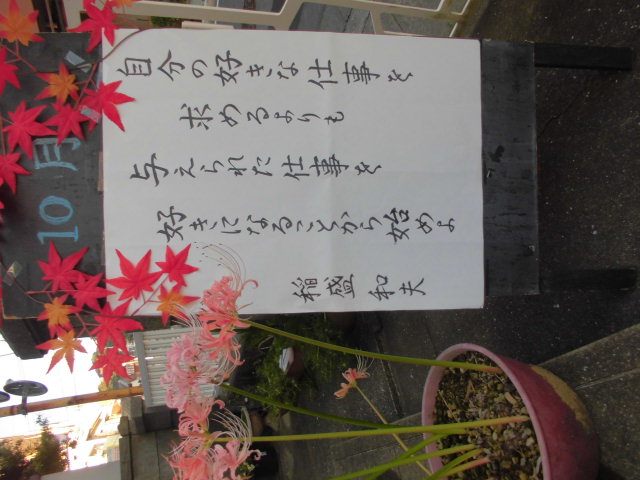 10月
自分の好きな仕事を
求めるよりも
与えられた仕事を
好きになることから始めよ
稲盛 和夫